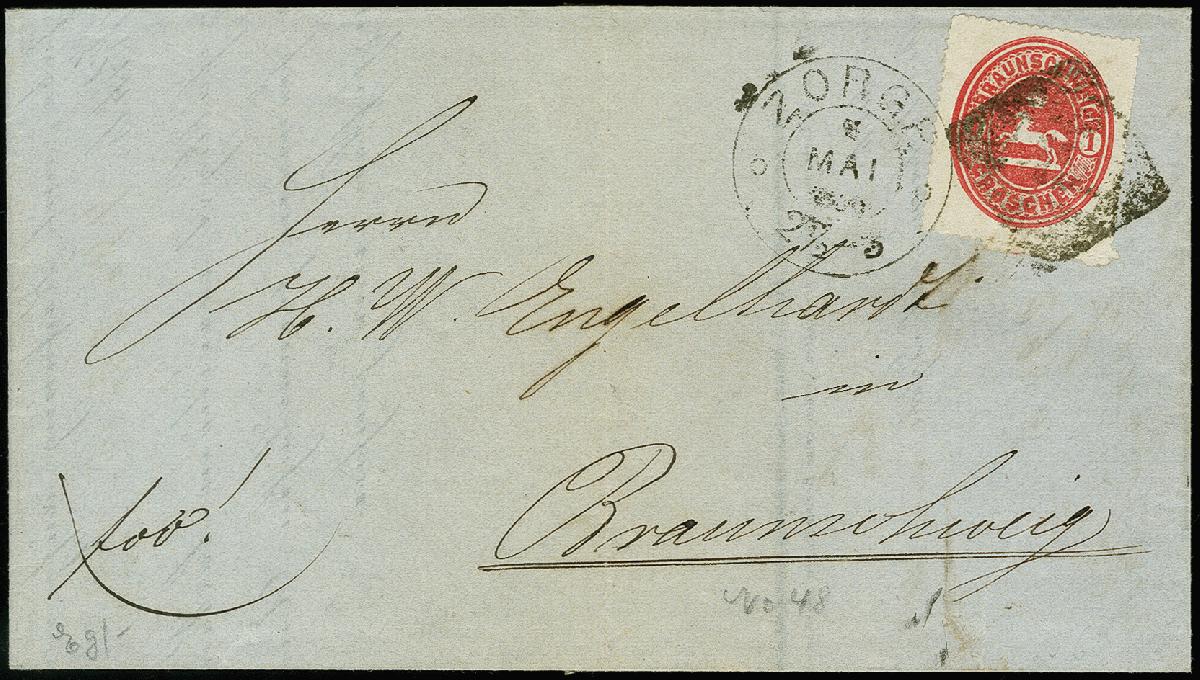 ZORGE
MAI
BRAUNSCHWEIG
1
GROSCHEN
Herrn
H. W. Engelhardt
in
Braunschweig
No 48